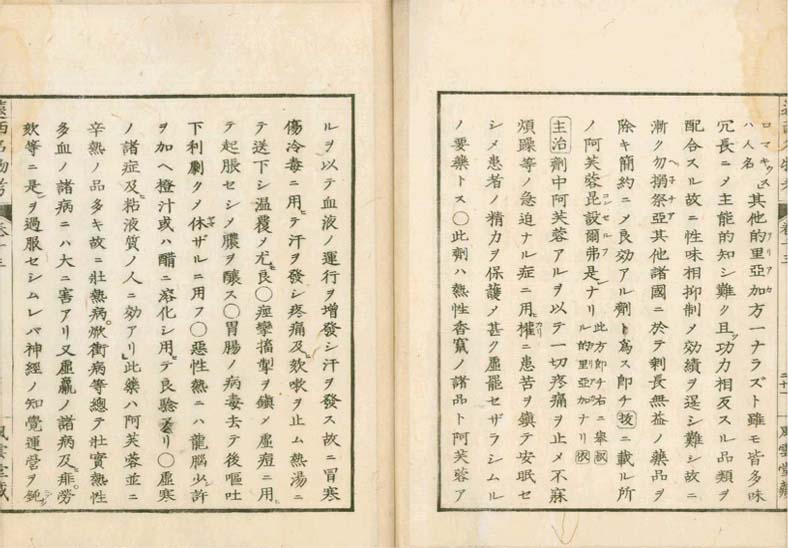 ロマキュス
ハ人名 其他的里亞加方一ナラズト雖モ皆多味
冗長ニメ主能的知シ難ク且功力相反スル品類ヲ
配合スル故ニ性味相抑制メ効績ヲ逞シ難シ故ニ
漸ク勿搦祭亞其他諸國ニ於テ剰長無益ノ藥品ヲ
除キ簡約ニメ良効アル劑ト爲ス即チ扶ニ載ル所
ノ阿芙蓉昆設爾弗是ナリ 此方即チ右ニ舉
ル的里亞加ナリ 依
主治 劑中阿芙蓉アルヲ以テ一切疼痛ヲ止メ不寐
煩躁等ノ急迫ナル症ニ用テ權ニ患苦ヲ鎮テ安眠セ
シメ患者ノ精力ヲ保護メ甚ク虚罷セザラシムル
ノ要藥トス〇此劑ハ熱性香竄ノ諸品ト阿芙蓉ア
遠西名物考 卷十三 二十一 風雲堂藏
ルヲ以テ血液ノ運行ヲ增發シ汗ヲ發ス故ニ冒寒
傷冷毒ニ用テ汗ヲ發シ疼痛及欬嗽ヲ止ム熱湯ニ
テ送下シ温覆メ尤良〇痙攣搐掣ヲ鎮メ虚痘ニ用
テ起脹セシメ膿ヲ釀ス〇胃腸ノ病毒去テ後嘔吐
下利劇クメ休ザルニ用フ〇惡性熱ニハ龍腦少許
ヲ加ヘ橙汁或ハ醋ニ溶化シ用テ良驗アリ〇虚寒
ノ諸症及粘液質ノ人ニ効アリ此藥ハ阿芙蓉並ニ
辛熱ノ品多キ故ニ壯熱病焮衝病等總テ壯實熱性
多血ノ諸病ニハ大ニ害アリ又虚羸ノ諸病及痱勞
欬等ニ是ヲ過服セシムレバ神經ノ知覺運營ヲ鈍
遠西名物考 卷十三 風雲堂藏